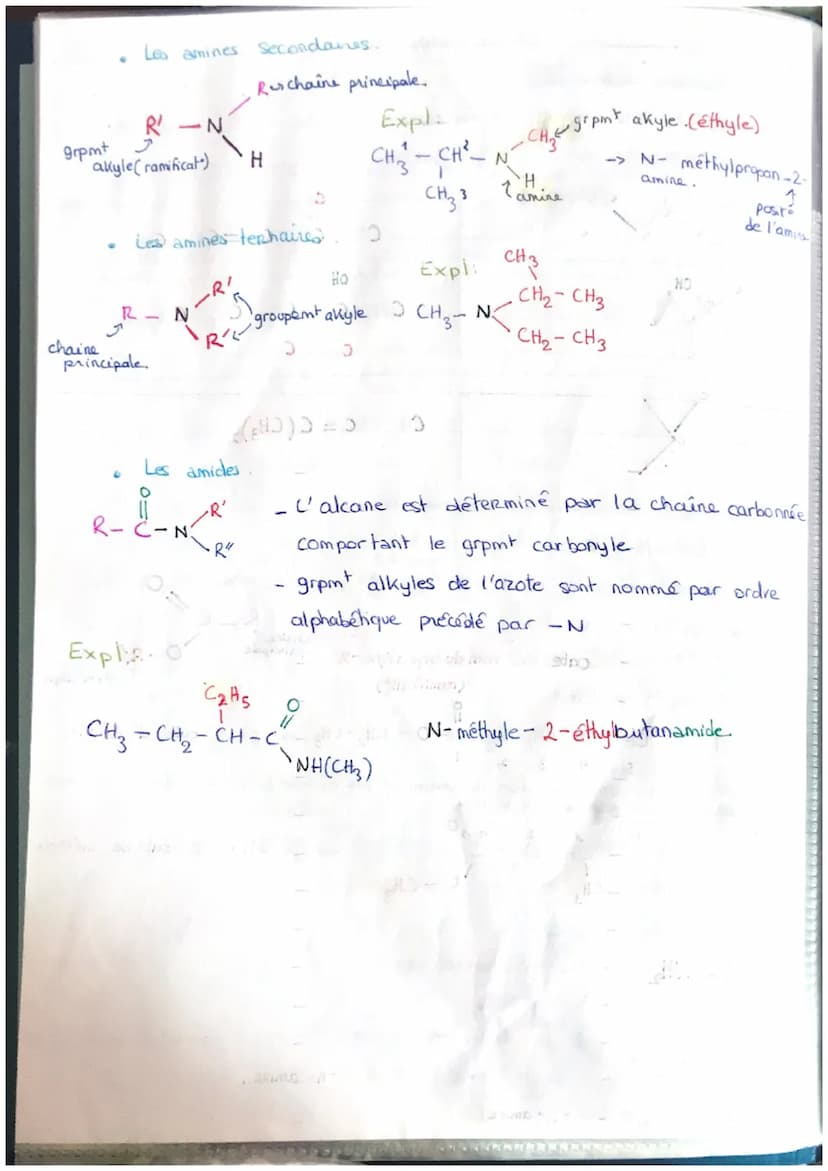 • Les amines secondaires.
R → chaîne principale.
R' — N
H
grpmt
alkyle (ramificat°)
Expl:
CH₃¹ — CH² — N
CH₃ 3
CH₃
H
amine
grpmt akyle (éthyle)
-> N- méthylpropan-2-
amine.
posit°
de l'amine
• Les amines tertiaires.
R — N
R'
R'
groupemt akyle
chaine
principale.
Expl:
CH₃
CH₃ — N
CH₂ — CH₃
CH₂ — CH₃
• Les amides.
O
R — C — N
R'
R"
- L'alcane est déterminé par la chaîne carbonnée
comportant le grpmt carbonyle
- grpmt alkyles de l'azote sont nommé par ordre
alphabétique précédé par -N
Expl:
C₂H₅
O
CH₃ — CH₂ — CH — C
NH(CH₃)
N- méthyle - 2-éthylbutanamide.